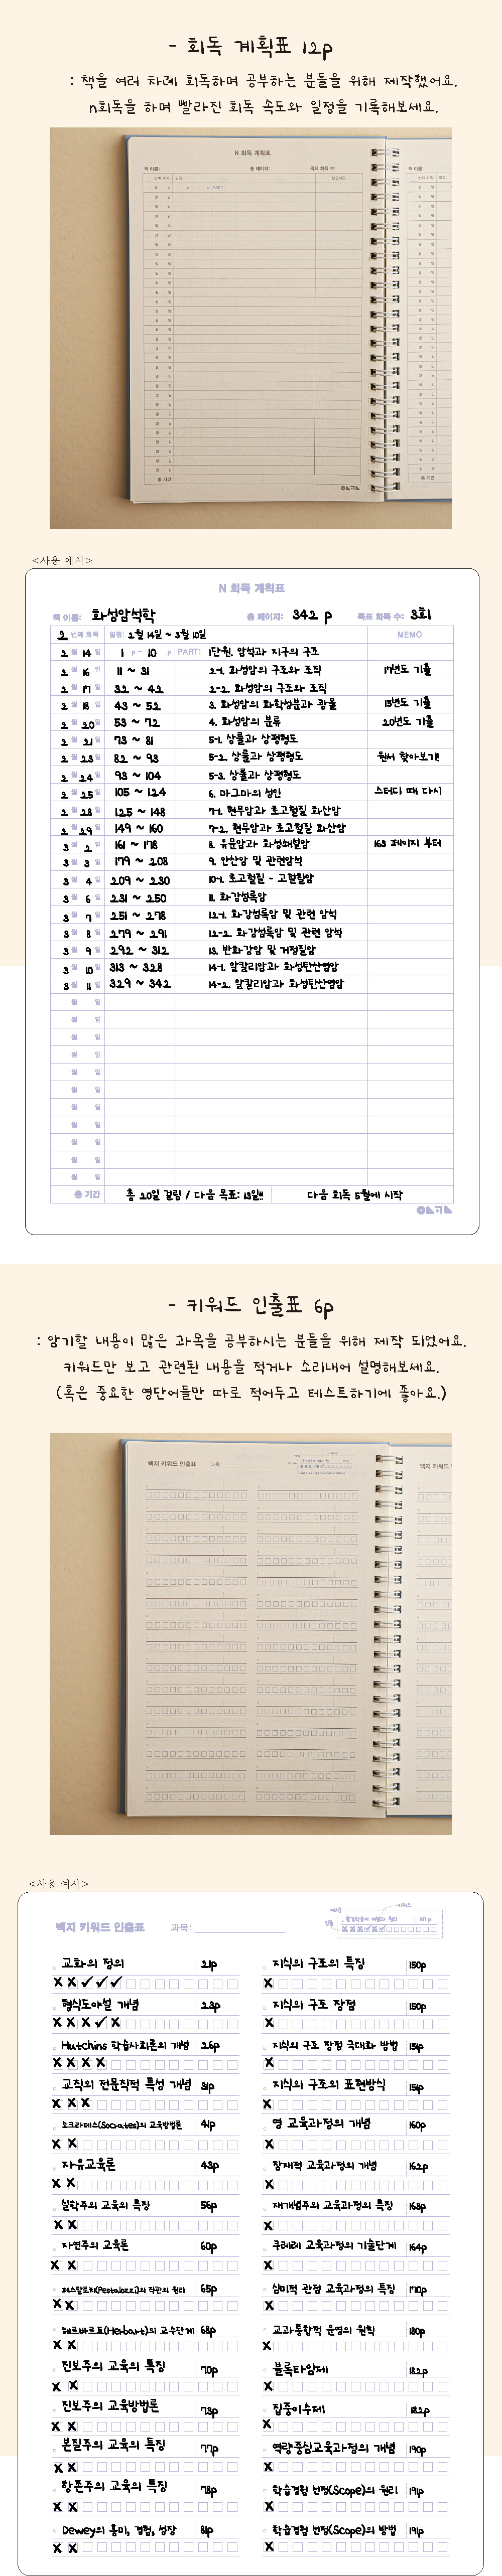 - 회독 계획표 12p
: 책을 여러 차례 회독하며 공부하는 분들을 위해 제작했어요.
n회독을 하며 빨라진 회독 속도와 일정을 기록해보세요.
N 회독 계획표
책 이름: 총 페이지: 목표 회독 수:
MEMO
총 기간
<사용 예시>
N 회독 계획표
책 이름: 화성암석학 총 페이지: 342 p 목표 회독 수: 3회
2 번째 회독 일정: 2월 14일 ~ 3월 10일 MEMO
2 월 14 일 1 p ~ 10 p PART: 1단원. 암석과 지구의 구조
2 월 16 일 11 ~ 31 2-1. 화성암의 구조와 조직 17년도 기출
2 월 17 일 32 ~ 42 2-2. 화성암의 구조와 조직
2 월 18 일 43 ~ 52 3. 화성암의 화학성분과 광물 15년도 기출
2 월 20 일 53 ~ 72 4. 화성암의 분류 20년도 기출
2 월 21 일 73 ~ 81 5-1. 상률과 상평형도
2 월 23 일 82 ~ 93 5-2. 상률과 상평형도 원서 찾아보기!
2 월 24 일 93 ~ 104 5-3. 상률과 상평형도
2 월 25 일 105 ~ 124 6. 마그마의 성인 스터디 때 다시
2 월 28 일 125 ~ 148 7-1. 현무암과 초고철질 화산암
2 월 29 일 149 ~ 160 7-2. 현무암과 초고철질 화산암
3 월 2 일 161 ~ 178 8. 유문암과 화성쇄설암 163 페이지 부터
3 월 3 일 179 ~ 208 9. 안산암 및 관련암석
3 월 4 일 209 ~ 230 10-1. 초고철질 - 고철질암
3 월 6 일 231 ~ 250 11. 화강섬록암
3 월 7 일 251 ~ 278 12-1. 화강섬록암 및 관련 암석
3 월 8 일 279 ~ 291 12-2. 화강섬록암 및 관련 암석
3 월 9 일 292 ~ 312 13. 반화강암 및 거정질암
3 월 10 일 313 ~ 328 14-1. 알칼리암과 화성탄산염암
3 월 11 일 329 ~ 342 14-2. 알칼리암과 화성탄산염암
월 일
월 일
월 일
월 일
월 일
월 일
월 일
월 일
월 일
월 일
월 일
총 기간 총 20일 걸림 / 다음 목표: 13일!! 다음 회독 5월에 시작
- 키워드 인출표 6p
: 암기할 내용이 많은 과목을 공부하시는 분들을 위해 제작 되었어요.
키워드만 보고 관련된 내용을 적거나 소리내어 설명해보세요.
(혹은 중요한 영단어들만 따로 적어두고 테스트하기에 좋아요.)
백지 키워드 인출표 과목:
<사용 예시>
백지 키워드 인출표 과목:
교화의 정의 21p 지식의 구조의 특징 150p
형식도야설 개념 23p 지식의 구조 장점 150p
Hutchins 학습사회론의 개념 26p 지식의 구조 장점 극대화 방법 151p
교직의 전문직적 특성 개념 31p 지식의 구조의 표현방식 151p
소크라테스(Socrates)의 교육방법론 41p 영 교육과정의 개념 160p
자유교육론 43p 잠재적 교육과정의 개념 162p
실학주의 교육의 특징 56p 재개념주의 교육과정의 특징 163p
자연주의 교육론 60p 쿠레레 교육과정의 기술단계 164p
페스탈로치(Pestalozzi)의 직관의 원리 65p 심미적 관점 교육과정의 특징 170p
헤르바르트(Herbart)의 교수단계 68p 교과통합적 운영의 원칙 180p
진보주의 교육의 특징 70p 블록타임제 182p
진보주의 교육방법론 73p 집중이수제 182p
본질주의 교육의 특징 77p 역량중심교육과정의 개념 190p
항존주의 교육의 특징 78p 학습경험 선정(Scope)의 원리 191p
Dewey의 흥미, 경험, 성장 81p 학습경험 선정(Scope)의 방법 191p